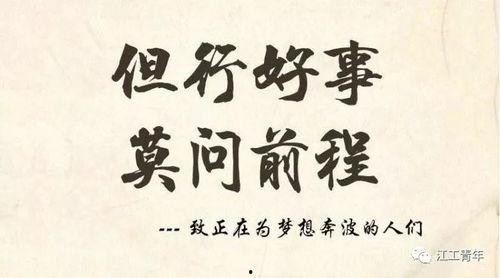 但行好事
莫问前程
--- 致正在为梦想奔波的人们
江工青年